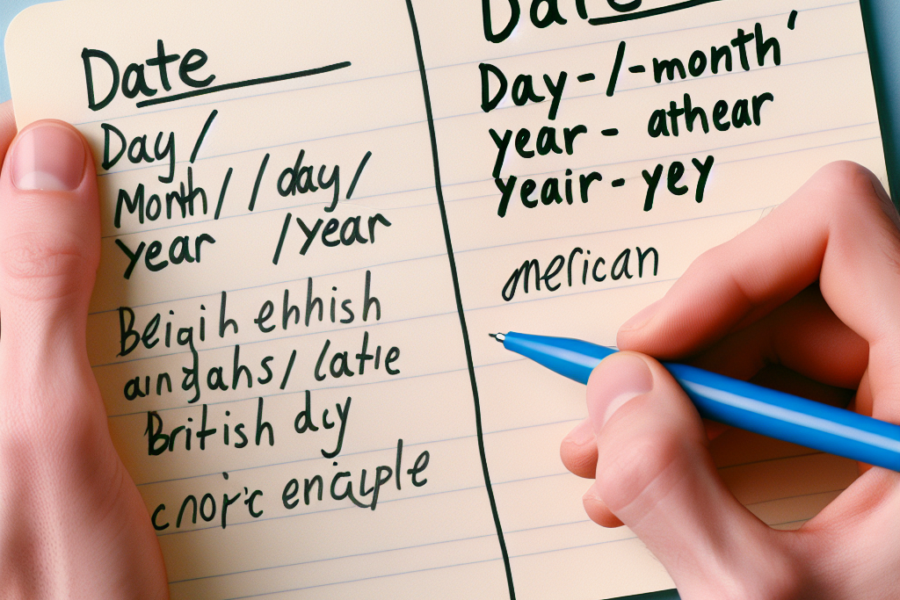 Date
Day /
Month / / day /
year / year
Beigih ehhish
aingahs / latie
British dcy
cnoric eniciple
Date
Day - / - month'
year - athear
yeair - yey
merican